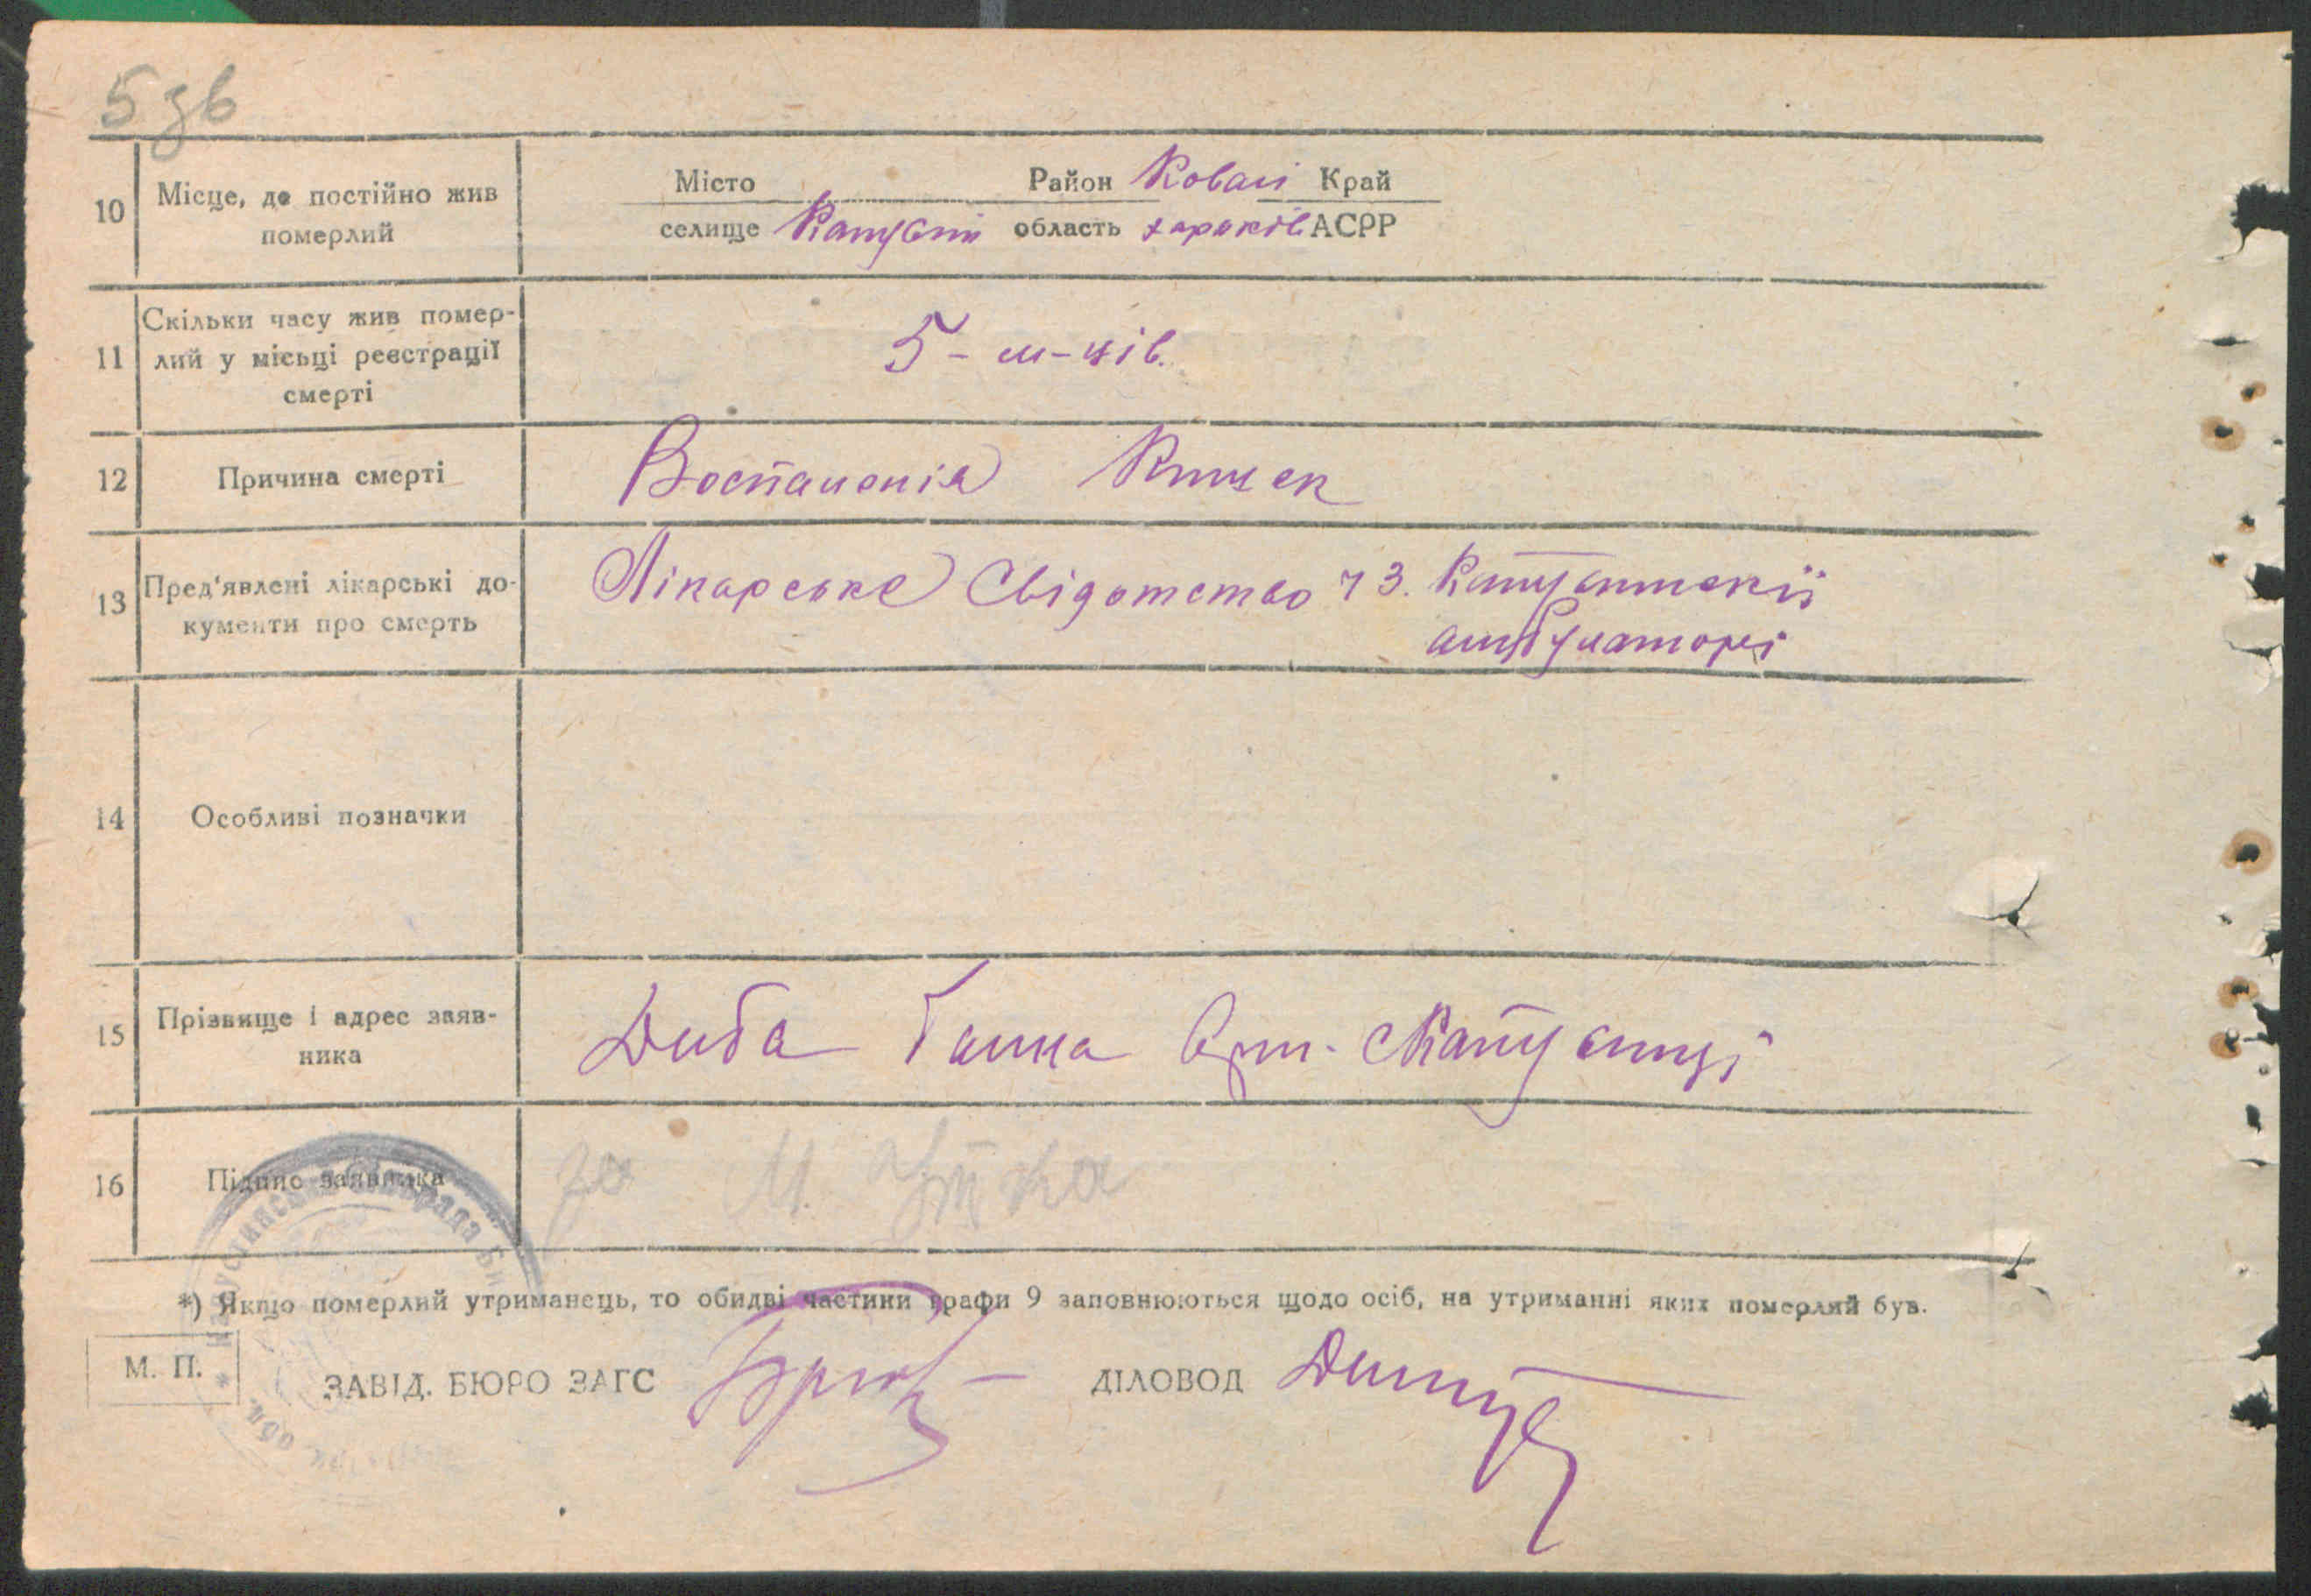 5 зв
10 Місце, де постійно жив
померлий
Місто Район Ковалі Край
селище область харків АСРР
11 Скільки часу жив помер-
лий у місьці реєстрації
смерті
5 - м-ців.
12 Причина смерті Воспаленія Кишек
13 Пред'явлені лікарські до-
кументи про смерть
Лікарське Свідотство 73.
амбулаторі
14 Особливі позначки
15 Прізвище і адрес заяв-
ника
Диба Ганна
16 Підпис заявника за
*) Якщо померлий утриманець, то обидві частини графи 9 заповнюються щодо осіб, на утриманні яких померлий був.
М. П.
ЗАВІД. БЮРО ЗАГС ДІЛОВОД